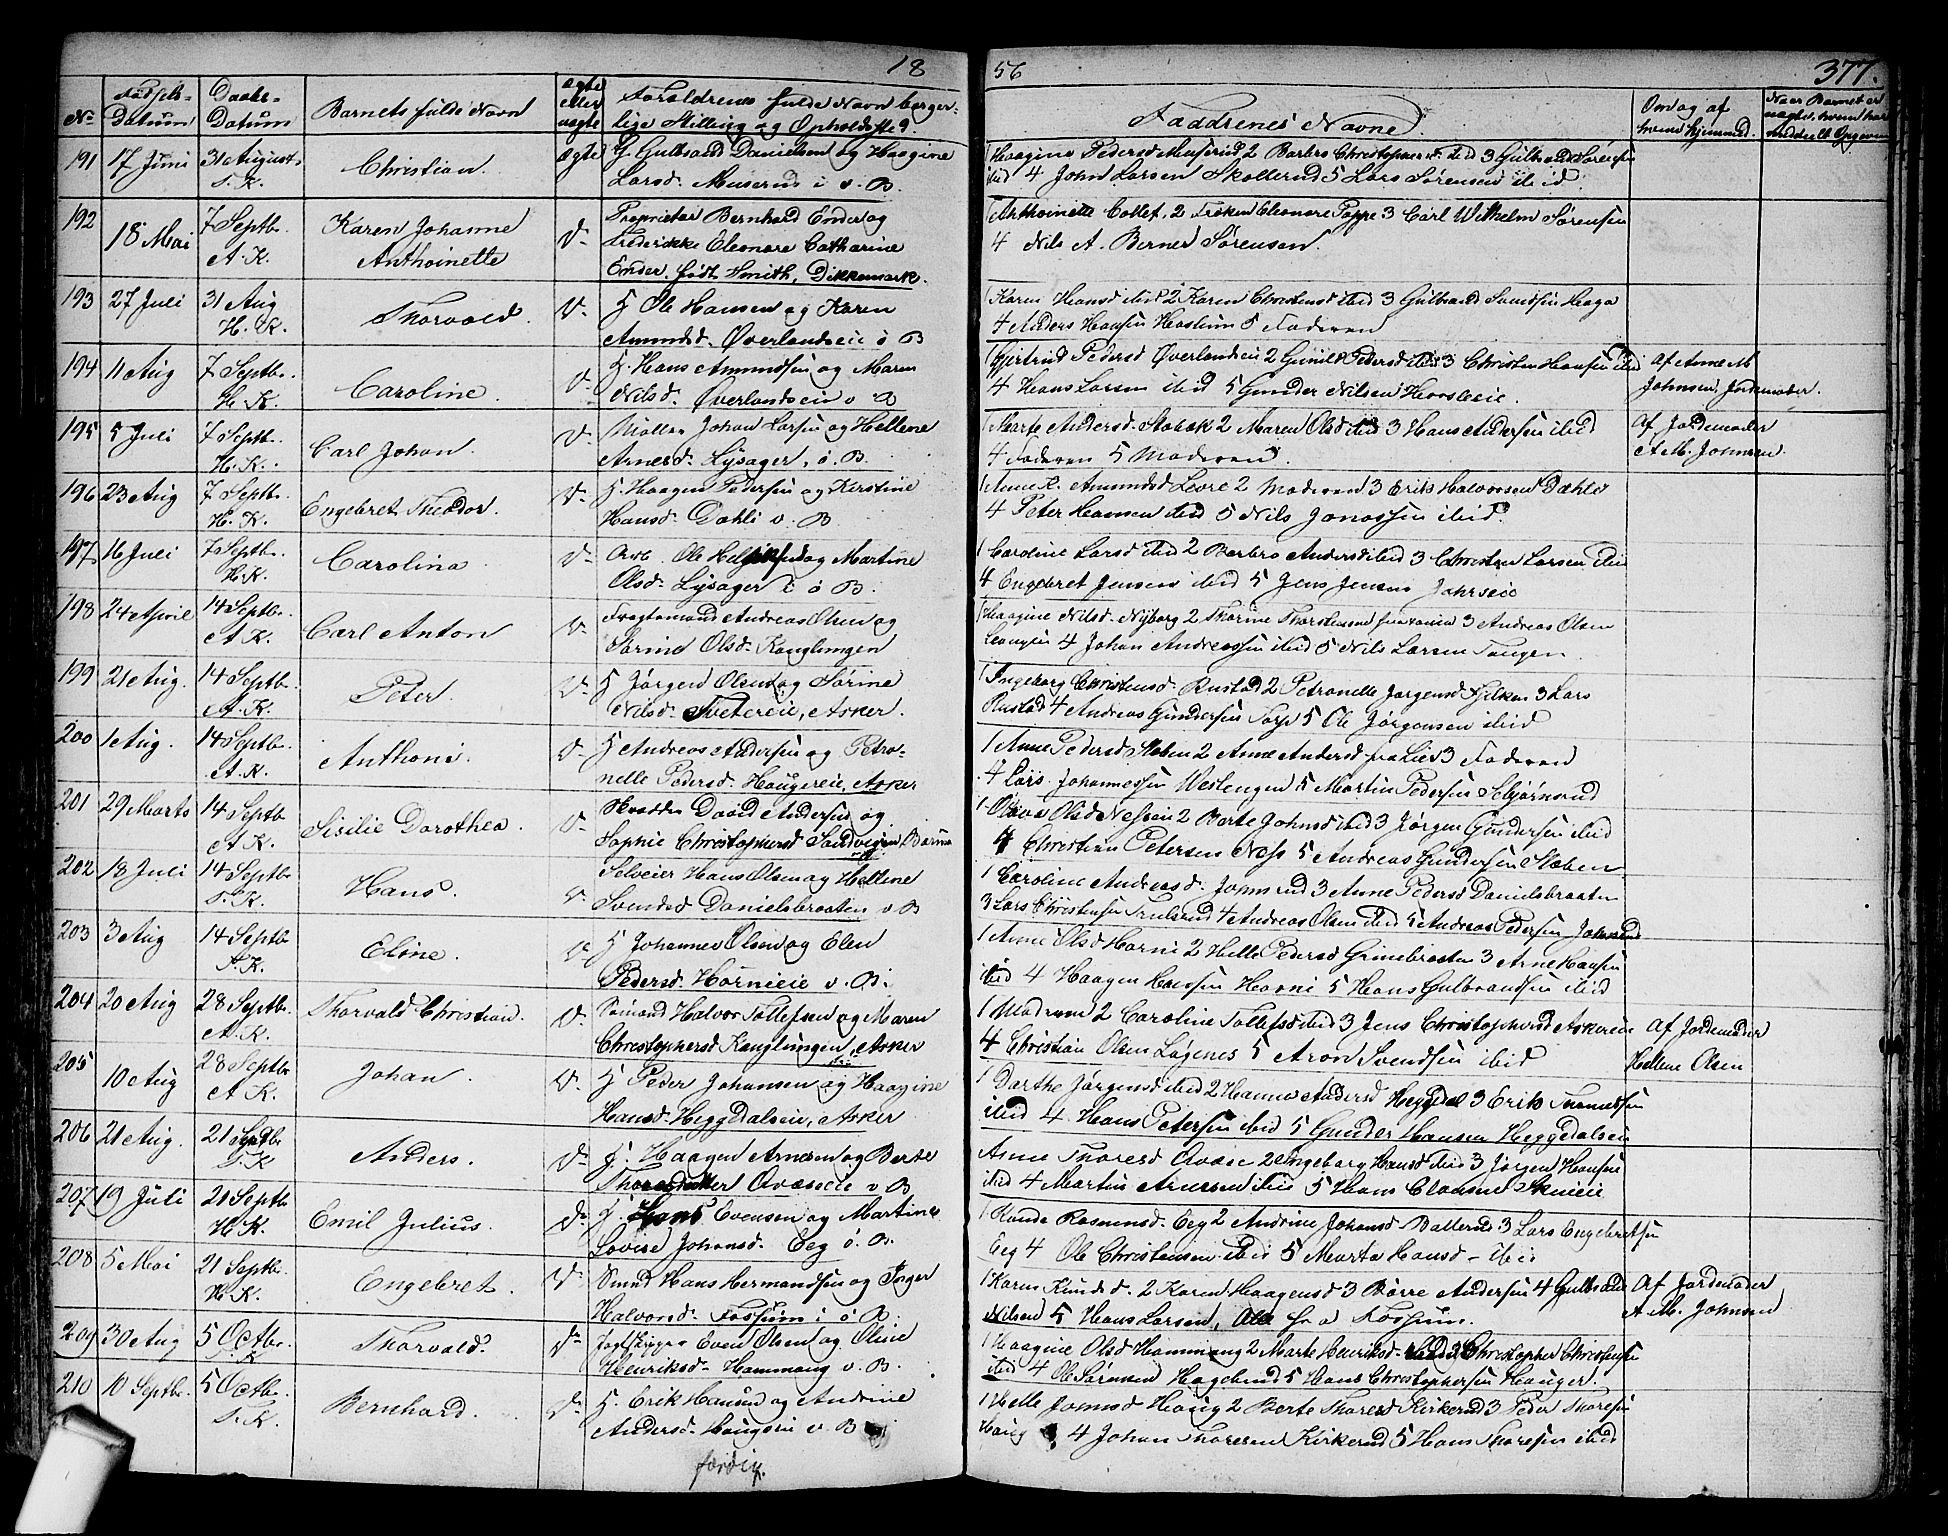 18
No Fødsels-Datum Daabs-Datum Barnets fulde Navn Ægte eller uægte Forældrenes fulde Navn borger-
lige Stilling og Opholdsted.
191 17 Juni 31 August Christian. Ægte G. Gulbrand Danielsen og Haagine
T. K. Larsd. Museruds i v. B.
192 18 Mai 7 Septbr. Karen Johanne Do Proprietær Bernhard Ender og
A. K. Anthoinette Frederikke Eleonore Catharine
Ender født Smith, Dikkemark.
193 27 Juli 31 Aug Thorvald. Do H. Ole Hansen og Karen
H. K. Amundsd. Øverlandseie ø B
194 11 Aug 7 Septbr. Caroline. Do H. Hans Amundsen og Maren
H. K. Nilsd. Øverlandseie v B
195 5 Juli 7 Septb. Carl Johan. Do Møller Johan Larsen og Hellene
H. K. Arnesd. Lysager, ø. B.
196 23 Aug 7 Septb. Engebret Theodor. Do H. Haagen Pedersen og Kirstine
H. K. Hansd. Dahli v. B
197 16 Juli 7 Septb. Carolina Do Arb. Ole og Martine
H. K. Olsd. Lysager i ø B.
198 24 April 14 Septb. Carl Anton Do Fragtemand Andreas Olsen og
A K. Sørine Olsd. Konglungen
199 21 Aug. 14 Septb. Peter. Do H Jørgen Olsen og Sørine
A. K. Nilsd. Tvetereie, Asker.
200 1 Aug. 14 Septb. Anthoni. Do H Andreas Andersen og Petro-
A. K. nelle Pedersd. Haugereie, Asker
201 29 Marts 14 Septb Sisilie Dorothea. Do Skrædder David Andersen og
A K. Sophie Christophersd Sandvigen Bærum
202 13 Juli 14 Septb. Hans. Do Selveier Hans Olsen og Hellene
T. K. Svendsd Danielsbraaten v B
203 3 Aug 14 Septb Eline. Do H Johannes Olsen og Elen
T. K. Pedersd. Hornieie v. B.
204 20 Aug 28 Septb. Thorvald Christian. Do Sømand Halvor Tollefsen og Maren
A. K. Christophersd Konglungen, Asker
205 10 Aug 28 Septb. Johan. Do H Peder Johansen og Haagine
A K. Hansd. Heggedalseie, Asker
206 21 Aug. 21 Septb. Anders. Do H. Haagen Arnesen og Berte
T. K Thoresdatter Qvæseie v B
207 19 Juli 21 Septb Emil Julius. Do H. Hans Evensen og Martine
H. K. Lovise Johansd. Eeg ø. B.
208 5 Mai 21 Septb. Engebret. Do Smed Hans Hermandsen og Inger
H. K. Halvorsd. Fossum i ø B.
209 30 Aug 5 Octbr. Thorvald. Do Jagtskipper Even Olsen og Oline
T. K Henriksd. Hammang v. B.
210 10 Septbr. 5 Octbr. Bernhard. Do H. Erik Hansen og Andrine
T. K. Andersd. Haugseie v. B
færdig.
56 377.
Faddrenes Navne. Om og af hvem hjemmed. Naar Barnet er uægte, hvem har meddeelt Opgaven
1 Haagine Pedersd Museruds 2 Barbro Christophersd ibid 3 Gulbrand Sørensen
ibid 4 John Larsen Skollerud 5 Lars Sørensen ibid.
Anthoinette Collet, 2 Frøken Eleonore Poppe 3 Carl Wilhelm Sørensen
4 Nils A. Berner Sørensen.
1 Karen Hansd ibid 2 Karen Christensd ibid 3 Gulbrand Svendsen Haga
4 Anders Hansen Haslum 5 Faderen
1 Gjertrud Pedersd Øverlandseie 2 Gunild Pedersd ibid 3 Christen Hansen ibid Af Anne M
4 Hans Larsen ibid 5 Gunder Nilsen Horsleeie. Johnsen, Jordemoder.
1 Marte Andersd. Stabæk 2 Maren Olsd ibid 3 Hans Andersen ibid Af Jordemoder
4 Faderen 5 Moderen. A M. Johnsen.
1 Anne K. Amundsd Levre 2 Moderen 3 Erik Halvorsen Dæhli
4 Peter Hansen ibid 5 Nils Jonassen ibid.
1 Caroline Larsd ibid 2 Barbro Andersd ibid 3 Christen Larsen ibid
4 Engebret Jensen ibid 5 Jens Jensen Jahrseie
1 Haagine Nilsd. Nyborg 2 Thorine Thorstensd 3 Andreas Olsen
4 Johan Andreassen ibid 5 Nils Larsen Tangen.
1 Ingeborg Christensd. Rustad 2 Petronelle Jørgensd Fjelken 3 Lars
Rustad 4 Andreas Gundersen Torp 5 Ole Jørgensen ibid
1 Anne Pedersd Staben 2 Anne Andersd fra Lie 3 Faderen
4 Lars Johannessen Westengen 5 Martin Pedersen Schjørnsrud
1 Olava Olsd Nessein 2 Berte Johnsd ibid 3 Jørgen Gundersen ibid
4 Christian Petersen Næss 5 Andreas Gundersen Staben.
1 Caroline Andreasd. Johnsrud 3 Anne Pedersd Danielsbraaten
3 Lars Christensen Trulsrud 4 Andreas Olsen ibid 5 Andreas Pedersen Johnsrud
1 Anne Olsd Horni 2 Helle Pedersd Grinebraaten 3 Arne Hansen
ibid 4 Haagen Hansen Horni 5 Hans Gulbrandsen ibid
1 Moderen 2 Caroline Tollefsd ibid 3 Jens Christophersen Askereie Af Jordemoder
4 Christian Olsen Løgenes 5 Aron Svendsen ibid Hellene Olsen
1 Dorthe Jørgensd ibid 2 Hanna Andersd Heggedal 3 Erik Thomessen
ibid 4 Hans Petersen ibid 5 Gunder Hansen Heggedalseie
Anne Thoresd Qvæse 2 Ingeborg Hansd ibid 3 Jørgen Hansen
ibid 4 Martin Arnesen ibid 5 Hans Clausen
1 Randa Rasmusd. Eeg 2 Andrine Johansd. Ballerud 3 Lars Engebretsen
Eeg 4 Ole Christensen ibid 5 Marta Hansd ibid
1 Karen Knudsd. 2 Karen Haagensd 3 Børre Andersen 4 Gulbrand Af Jordemoder
Nilsen 5 Hans Larsen, Alle fra Fossum. A. M. Johnsen
1 Haagine Olsd Hammang 2 Marte Henriksd. ibid 3 Christopher Christensen
ibid 4 Ole Sørensen Hagelund 5 Hans Christophersen Hauger.
1 Helle Jonasd Haug 2 Berte Thoresd Kirkerud 3 Peder Thoresen
Haug 4 Johan Thoresen Kirkerud 5 Hans Thoresen ibid